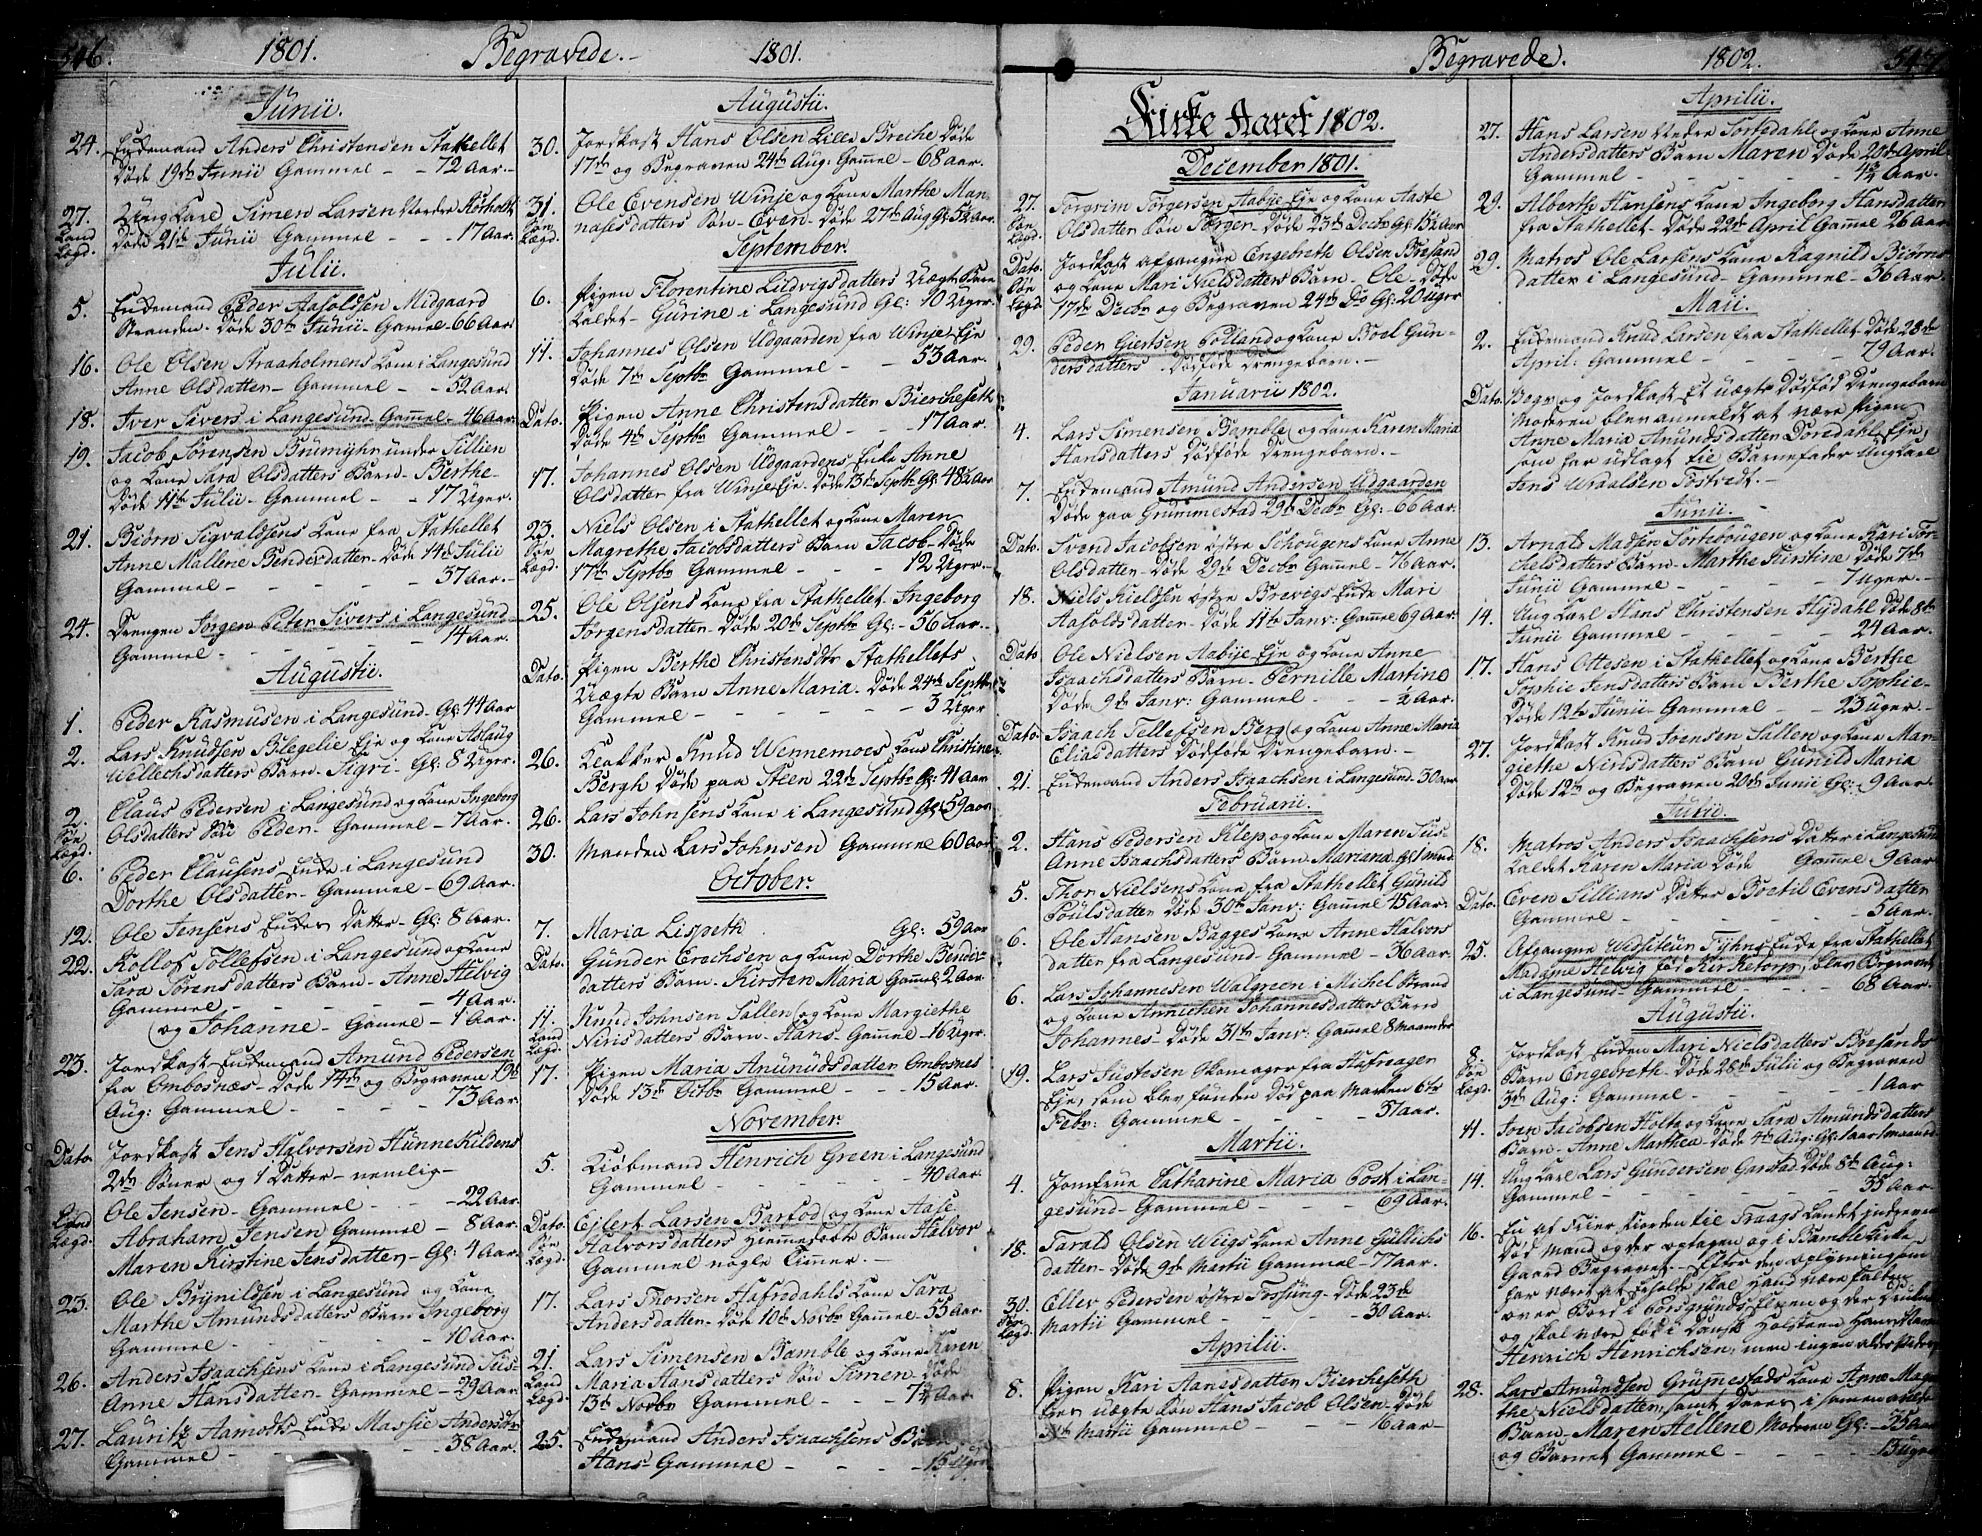 546.
1801.
Begravede.
1801.
Junii.
24. Enkemand Anders Christensen Stathellet
Døde 19de Junii Gammel - - 72 Aar.
27. Ung Karl Simen Larsen Nordre Rørholt
Land Lægd. Døde 21de Junii Gammel - - 17 Aar.
Julii.
5. Enkemand Peder Aasoldsen Midgaard
Stranden. Døde 30te Junii - Gamel 66 Aar.
16. Ole Olsen Straaholmens Kone i Langesund
Anne Olsdatter - Gammel - - 52 Aar.
18. Iver Sivers i Langesund - Gammel - 46 Aar.
19. Jacob Sørensen Brumyhr under Tillien
og Kone Sara Olsdatters Barn - Berthe -
Døde 11te Julii - Gammel - - 17 Uger.
21. Biørn Sigvaldsens Kone fra Stathellet
Anne Mallene Bendixdatter - Døde 14de Julii
Gammel - - - 37 Aar.
24. Drengen Jørgen Peter Sivers i Langesund
Gammel - - - 14 Aar.
Augustii.
1. Peder Rasmusen i Langesund - Gl: 44 Aar
2. Lars Knudsen Blegelie Eje og Kone Aslaug
Wellechsdatters Barn - Sigri - Gl: 8 Uger.
2. Claus Pedersen i Langesund og Kone Ingeborg
Søe Lægd. Olsdatters Søn Peder - Gammel - 7 Aar.
6. Peder Clausens Enke i Langesund
Dorthe Olsdatter - Gammel - 69 Aar.
12. Ole Jensens Enkes Datter - Gl: 8 Aar.
22. Rollof Tollefsen i Langesund og Kone
Sara Sørensdatters Barn - Anne Helvig
Gammel - - - 4 Aar.
og Johanne - Gamel - 1 Aar.
23. Jordkast Enkemand Amund Pedersen
fra Ombosnæs - Døde 14de og Begraven 19de
Aug: Gammel - - - 73 Aar.
Dato. Jordkast Jens Halvorsen Hunne Kildens
2de Sønner og 1 Datter - nemlig -
Ole Jensen - Gammel - - 22 Aar.
Land Lægd. Abraham Jensen Gammel - 8 Aar.
Maren Kirstine Jensdatter - Gl: 4 Aar.
23. Ole Brynildsen i Langesund og Kone
Marthe Amundsdatters Barn Ingeborg
Gammel - - - 10 Aar.
26. Anders Isaachsens Kone i Langesund Sus-
Anne Hansdatter - Gammel - 29 Aar.
27. Lauritz Aamodts Enke Massie Andersdtr
Gammel - - - 38 Aar.
Augustii.
30. Jordkast Hans Olsen Lille Breche Døde
17de og Begraven 24de Aug: Gamel - 68 Aar.
31. Ole Evensen Winje og Kone Marthe Man-
Søe Lægd. nasesdatters Søn - Even - Døde 27de Aug Gl: 5½ Aar
September.
6. Pigen Florentine Ludvigsdatters Uægte Barn
Kaldet - Gurine i Langesund Gl: 10 Uger.
11. Johannes Olsen Udgaarden fra Winje Eje
Døde 7de Septbr Gammel - - 53 Aar.
Dato. Pigen Anne Christensdatter Biercheseth
Døde 4de Septbr Gammel - - 17 Aar.
17. Johannes Olsen Udgaardens Enke Anne
Olsdatter fra Winje Eje - Døde 13de Septbr Gl: 48½ Aar
23. Niels Olsen i Stathellet og Kone Maren
Søe Lægd. Magrethe Jacobsdatters Barn Jacob - Døde
17de Septbr Gammel - - - 12 Uger.
25. Ole Olsens Kone fra Stathellet - Ingeborg
Jørgensdatter - Døde 20de Septbr Gl: - 56 Aar.
Dato. Pigen Berthe Christensdtr Stathellets
Uægte Barn Anne Maria - Døde 24de Septbr
Gammel - - - 3 Uger
26. Klokker Knud Wennemoes Kone Christine
Bergh Døde paa Steen 22de Septbr Gl: 41 Aar
26. Lars Johnsens Kone i Langesund Gl 59 Aar
30. Manden Lars Johnsen Gammel 60 Aar
October.
7. Maria Lispeth Gl: 59 Aar
Dato. Gunder Erochsen og Kone Dorthe Bendix-
datters Barn - Kirsten Maria Gammel 2 Aar.
11. Knud Johnsen Sallen og Kone Margiethe
Land Lægd. Nirisdatters Barn - Hans - Gammel - 16 Uger.
17. Pigen Maria Amundsdatter Ombosnes
Døde 13de Octbr Gammel - 15 Aar.
November.
5. Kiøbmand Henrich Green i Langesund
Gammel - - - 40 Aar.
Dato. Ejlert Larsen Barfod og Kone Aase
Søe Lægd. Halvorsdatters Hiemmedøbte Barn Halvor
Gammel nogle Timer. -
17. Lars Thorsen Hafrdahls Kone Sara
Andersdatter - Døde 10de Novbr Gammel - 55 Aar.
21. Lars Simensen Bamble og Kone Karen
Land Lægd. Maria Hansdatters Søn Simen - Døde
13de Novbr Gammel - - 7¼ Aar
25. Enkemand Anders Isaachsens Barn
Hans - Gammel - - - 15 Uger
Begravede.
1802.
547.
Kirke Aaret 1802.
December 1801.
27. Torgrim Torgersen Aabye Eje og Kone Aaste
Søe Lægd. Olsdatter Søn Torger - Døde 23de Decbr Gl: 15½ Aar
Dato. Jordkast afgangne Engebreth Olsen Bresand
Søe Lægd. og Kone Mari Nielsdatters Barn - Ole - Døde
17de Decbr og Begraven 24de Do Gl: 20 Uger
29. Peder Giertsen Tolland og Kone Boel Gun-
dersdatters Dødføde Drengebarn. -
Januarii 1802.
4. Lars Simensen Bamble og Kone Karen Maria
Hansdatters Dødføde Drengebarn. -
7. Enkemand Amund Andersen Udgaarden
Døde paa Grummestad 29de Decbr Gl: - 66 Aar.
Dato. Svend Jacobsen østre Schougens Kone Anne
Olsdatter - Døde 29de Decbr Gammel - 76 Aar.
18. Niels Kieldsen østre Brevigs Enke Mari
Aasoldsdatter - Døde 11te Janv: Gammel 69 Aar.
Dato Ole Nielsen Aabye Eje og Kone Anne
Isaachsdatters Barn - Pernille Martine
Døde 9de Janv: Gammel - - ½ Aar.
Dato. Isaach Tellefsen Berg og Kone Anne Maria
Eliasdatters Dødføde Drengebarn. -
21. Enkemand Anders Isaachsen i Langesund 30 Aar
Februarii.
2. Hans Pedersen Klep og Kone Maren Sus-
Anne Isaachsdatters Barn Mariana Gl 1 Mnd
5. Thor Nielsens Kone fra Stathellet Gunild
Poulsdatter Døde 30te Janv: Gammel 45 Aar.
6. Ole Hansen Bagges Kone Anne Halvors
datter fra Langesund - Gammel - 36 Aar.
6. Lars Johannesen Walgreen i Michel Strand
og Kone Annichen Johannesdatters Barn
Johannes - Døde 31te Janv: Gammel 8 Maaneder
19. Lars Justesen Skomager fra Hafsager
Eje, som blev funden Død paa Marken 6te
Febr: Gammel - - - 37 Aar.
Martii.
4. Jomfrue Catharine Maria Post i Lan-
gesund - Gammel - - - 69 Aar.
18. Tarald Olsen Weigs Kone Anne Gullichs
datter - Døde 9de Martii Gammel - 77 Aar.
30. Ellev Pedersen østre Fossung - Døde 23de
Søe Lægd. Martii Gammel - - - 30 Aar.
Aprilii.
8. Pigen Kari Aanesdatter Bierchesetth
hendes uægte Søn Hans Jacob Olsen - Døde
Martii Gammel - - - 16 Aar
Aprilii.
27. Hans Larsen Nedre Tortsdahl og Kone Anne
Andersdatters Barn Maren Døde 20de April
Gammel - - - 4¾ Aar.
29. Alberth Hansens Kone Ingeborg Hansdatter
fra Stathellet - Døde 22de April Gammel 26 Aar
29. Matros Ole Larsens Kone Ragnild Biørns
datter i Langesund - Gammel - 36 Aar.
Maii.
2. Enkemand Knud Larsen fra Stathellet Døde 28de
April: Gammel - - - 79 Aar.
Dato. Begr: og Jordkast Et uægte Dødfød Drengebarn
Moderen blev anmeldt at være Pigen
Anne Maria Amundsdatter Doredahls Eje,
som har udlagt til Barnefader Ung Karl
Jens Wraalsen Tostvedt. -
Junii.
13. Arnold Madsen Tortebougen og Kone Kari Tor-
chelsdatters Barn - Marthe Kirstine Døde 7de
Junii Gammel - - - 7 Uger. -
14. Ung Karl Hans Christensen Hydahl Døde 8de
Junii Gammel - - - 24 Aar.
17. Hans Ottesen i Stathellet og Kone Berthe
Sophie Jensdatters Barn Berthe Sophie -
Døde 12te Junii Gammel - - 23 Uger. -
27. Jordkast Knud Svensen Sallen og Kone Mar-
giethe Nirisdatters Barn Gunild Maria
Døde 12te og Begraven 20de Junii Gl: 9 Aar.
Julii.
18. Matros Anders Isaachsens Datter i Langesund
Kaldet Karen Maria Døde Gammel 9 Aar
Dato. Even Tillians Datter Boetil Evensdatter
Gammel - - - 5 Aar
25. Afgangne Visiteur Fyhns Enke fra Stathellet
Madame Helvig fød Kirketorp, blev Begravet
i Langesund - Gammel - - 68 Aar.
Augustii.
8. Jordkast Enken Mari Nielsdatters Bresands
Søe Lægd. Barn Engebreth - Døde 28de Julii og Begraven
3de Aug: Gammel - - - 1 Aar
11. Sven Jacobsen Holte og Kone Sara Amundsdatters
Barn - Anne Marthea - Døde 4de Aug: Gl: 1 Aar 1 Maaned
14. Ung Karl Lars Gundersen Garstad Døde 8de Aug:
Gammel - - - 35 Aar.
16. En af Frier Fiorden til Traags Landet inddreven
Død Mand og der optagen og i Bamble Kirke
Gaard Begravet. Efter den oplysning som
har været at erholde skal hand være falden
over Bord i Porsgrunds Elven og der Druknet
og skal være fød i Dansk Holsteen
Henrich Henrichsen, men ingen alder
28. Lars Amundsen Grumestads Kone Anne Mag-
the Nielsdatter, samt Deres i samme
Barn - Maren Hellene Moderen Gl: - 35 Aar
og Barnet Gammel - - 13 Uger